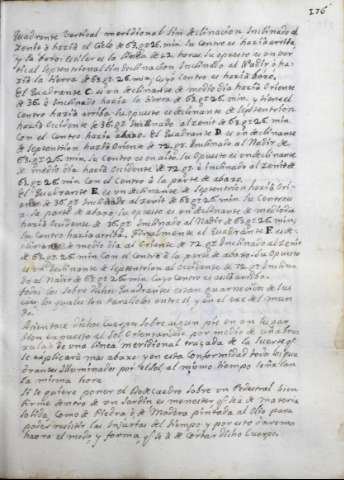 276
Quadrante Vertical meridional sin declinacion Inclinado al
Zenit o hazia el Cielo de 63.gr 26. min. su Centro es hazia arriba
y la
tical septentrional sin declinacion Inclinado al Nadir o ha-
zia la tierra de 63.gr 26. min, cuyo Centro es hazia baxo.
El Quadrante C. es un declinante de medio dia hazia oriente
de 36. gr Inclinado hazia la tierra de 63.gr 26. min, y tiene el
Centro hazia arriba, su opuesto es declinante de septentrion
hazia occidente de 36.gr Inclinado al Zenit de 63.gr 26. min
con el Centro hazia abaxo. El Quadrante D. es un declinante
de septentrion hazia Oriente de 72. gr Inclinado al Nadir de
63.gr 26. min, su Centro es en alto, su opuesto es un declinante
de medio dia hazia Occidente de 72. gr Inclinado al Zenit de
63.gr 26. min con el Centro a la parte de abaxo.
El Quadrante E. es un declinante de septentrion hazia Ori-
ente de 36. gr Inclinado al Zenit de 63.gr 26. min su Centro
a la parte de abaxo, su opuesto es un declinante de mediodia
hazia Occidente de 36.gr Inclinado al Nadir de 63.gr 26. min,
su Centro hazia arriba, finalmente el Quadrante F. es de-
clinante de medio dia al Oriente de 72. gr Inclinado al Zenit
de 63.gr 26. min con el Centro a la parte de abaxo, su opuesto
es un declinante de septentrion al Occidente de 72. gr Inclina-
do al Nadir de 63.gr 26. min cuyo Centro es
todos los sobre dichos Quadrantes estan guarnecidos de sus
los quales son Paralelos entre si y con el exe del mun-
do.
dichos Cuerpos sobre algun pie en un lugar
bien expuesto al sol Orientandolo por medio de una bru-
xula o de una linea meridional trazada de la suerte q.
se explicará mas abaxo y en esta Conformidad todos los qua-
drantes Illuminados por el sol, al mismo tiempo señalan
la misma hora
Si se quiere poner el Dodecaedro sobre un Pedestral bien
firme dentro de un Jardin es menester q. sea de materia
solida, como de Piedra o de Madera pintada al olio para
poder resistir las Injurias del tiempo y por esto daremos
haora el modo, y forma, q. se á de cortar dicho Cuerpo.